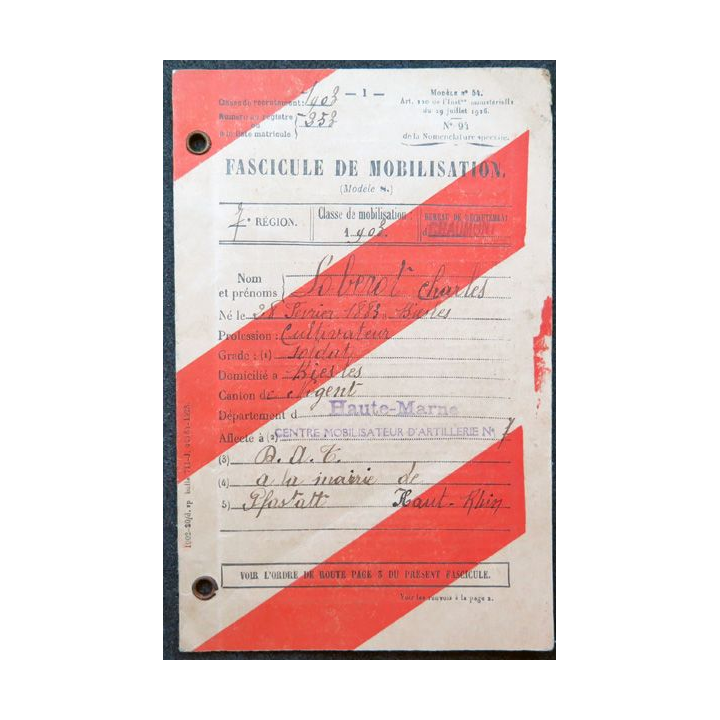 Classe de recrutement : 1903 — 1 — Modèle n° 54.
Numéro au registre 353 Art. de l'Inst^on ministérielle
du 29 juillet 1916.
ou à la liste matricule N° 94
de la Nomenclature spéciale.
FASCICULE DE MOBILISATION.
(Modèle S.)
7e RÉGION. Classe de mobilisation : BUREAU DE RECRUTEMENT
1903. d CHAUMONT
Nom
et prénoms Loberot Charles
Né le 28 Février 1883 Biesles
Profession : Cultivateur
Grade : (1) soldat
Domicilié à Biesles
Canton de Nogent
Département d Haute-Marne
Affecté à (2) CENTRE MOBILISATEUR D'ARTILLERIE N° 7
(3) B.A.T.
(4) a la mairie de
5) Pfastatt Haut-Rhin
VOIR L'ORDRE DE ROUTE PAGE 3 DU PRÉSENT FASCICULE.
Voir les renvois à la page 2.